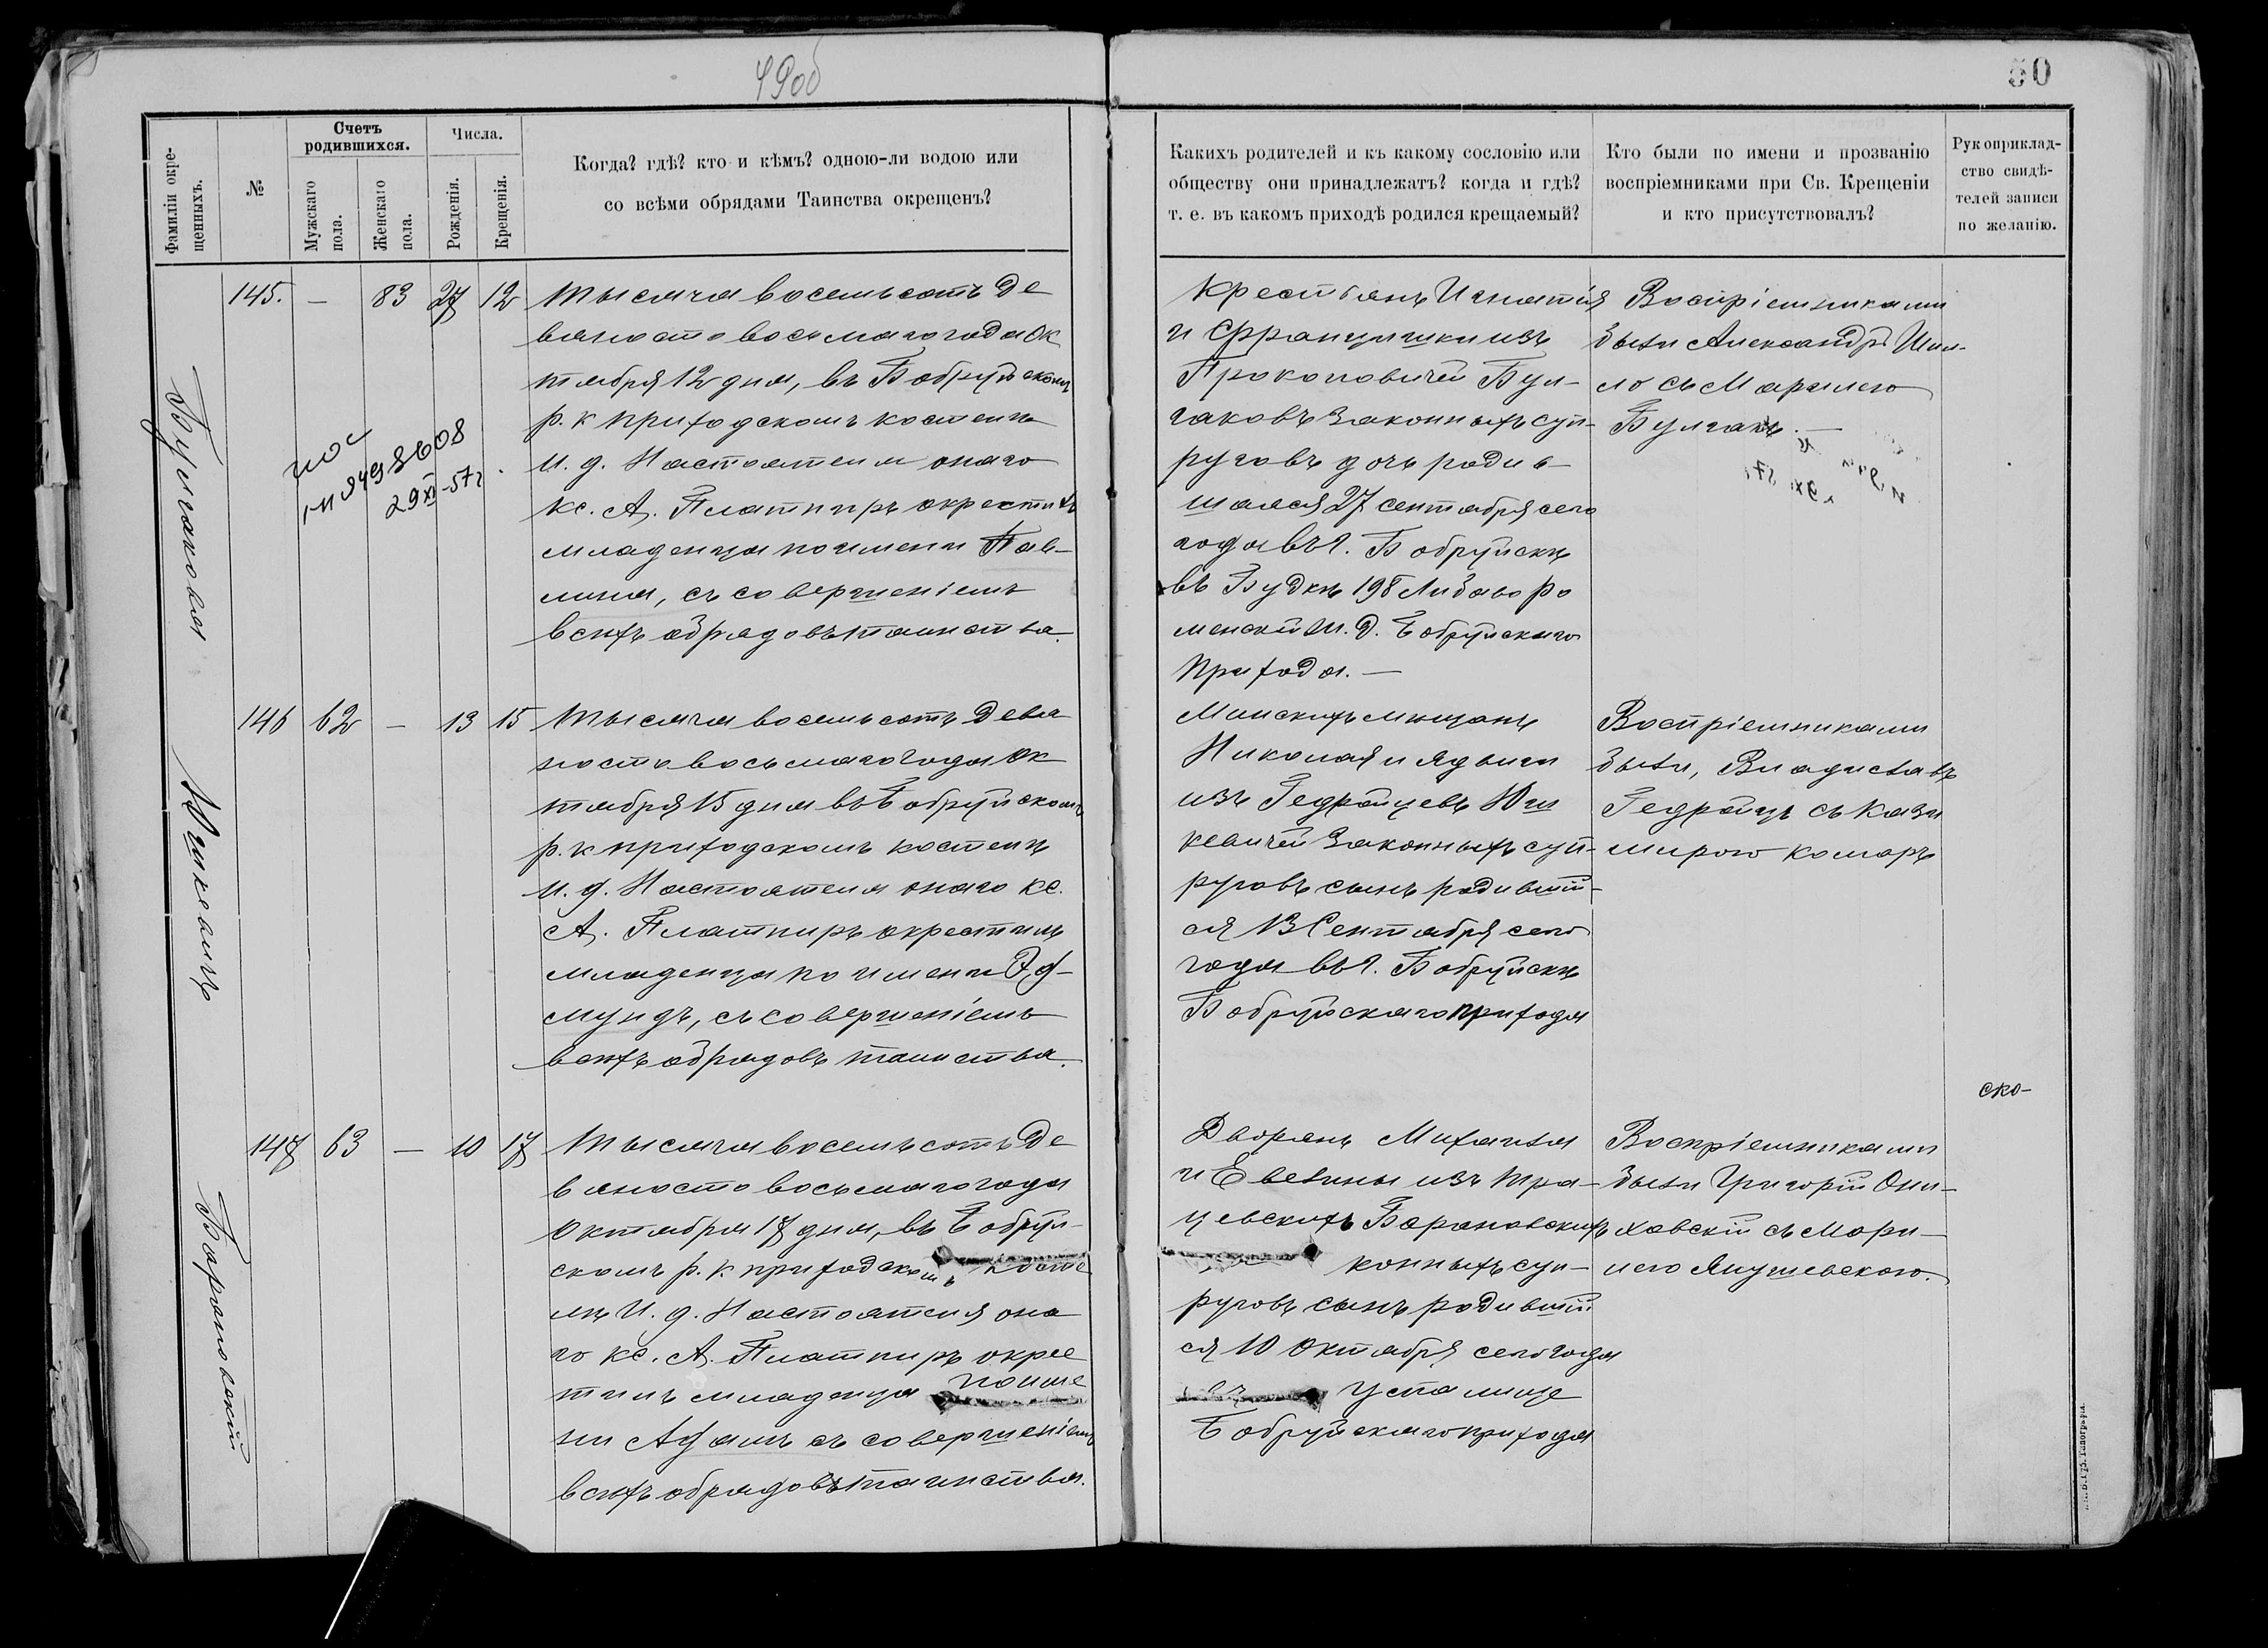 49об
50
Фамиліи окре-
щенныхъ.
№
Счетъ
родившихся.
Мужскаго
пола.
Женскаго
пола.
Числа.
Рожденія.
Крещенія.
Когда? гдѣ? кто и кѣмъ? одною-ли водою или
со всѣми обрядами Таинства окрещенъ?
Какихъ родителей и къ какому сословію или
обществу они принадлежатъ? когда и гдѣ?
т. е. въ какомъ приходѣ родился крещаемый?
Кто были по имени и прозванію
воспріемниками при Св. Крещеніи
и кто присутствовалъ?
Рукоприклад-
ство свидѣ-
телей записи
по желанію.
Булгакова
145. — 83 27 12
29 XI-57г.
Тысяча восемьсотъ де
вяносто восьмого года Ок
тября 12 дня, въ Бобруйскомъ
р. к приходскомъ костелѣ
И. д. Настоятеля онаго
кс. А. Платпиръ окрестилъ
младенца по имени Пав-
лина, съ совершеніемъ
всѣхъ обрядовъ таинства.
Крестьянъ Игнатія
и Францишки изъ
Прокоповичей Бул-
гаковъ законныхъ суп-
руговъ дочь родив-
шаяся 27 сентября сего
года въ г. Бобруйскѣ
въ Будкѣ 198 Либаво Ро
менской ж. д. Бобруйскаго
прихода. —
Воспріемниками
были Александръ Шил-
ло съ Марилею
Булгакъ. —
Юшкевичъ
146 62 — 13 15
Тысяча восемьсотъ девя
носто восьмаго года Ок
тября 15 дня въ Бобруйскомъ
р. к приходскомъ костелѣ
И. д. Настоятеля онаго кс.
А. Платпиръ окрестилъ
младенца по имени Эд-
мундъ, съ совершеніемъ
всѣхъ обрядовъ таинства.
Минскихъ мѣщанъ
Николая и Ядвиги
изъ Гедройцевъ Юш
кевичей законныхъ суп-
руговъ сынъ родившій-
ся 13 Сентября сего
года въ г. Бобруйскѣ
Бобруйскаго прихода
Воспріемниками
были, Владиславъ
Гедройцъ съ Кази
мирою Комаръ
ско-
Барановскій
147 63 — 10 17
Тысяча восемьсотъ де
вяносто восьмаго года
Октября 17 дня, въ Бобруй-
скомъ р. к. приходскомъ косте
лѣ И. д. Настоятеля она
го кс. А. Платпиръ окрес
тилъ младенца по име
ни Адамъ съ совершеніемъ
всѣхъ обрядовъ таинства.
Дворянъ Михаила
и Евелины изъ Тра-
цевскихъ Барановскихъ
конныхъ суп-
руговъ сынъ родившій
ся 10 Октября сего года
Бобруйскаго прихода
Воспріемниками
были Григорій Они-
ховскій съ Мари-
лею Янушевскою.